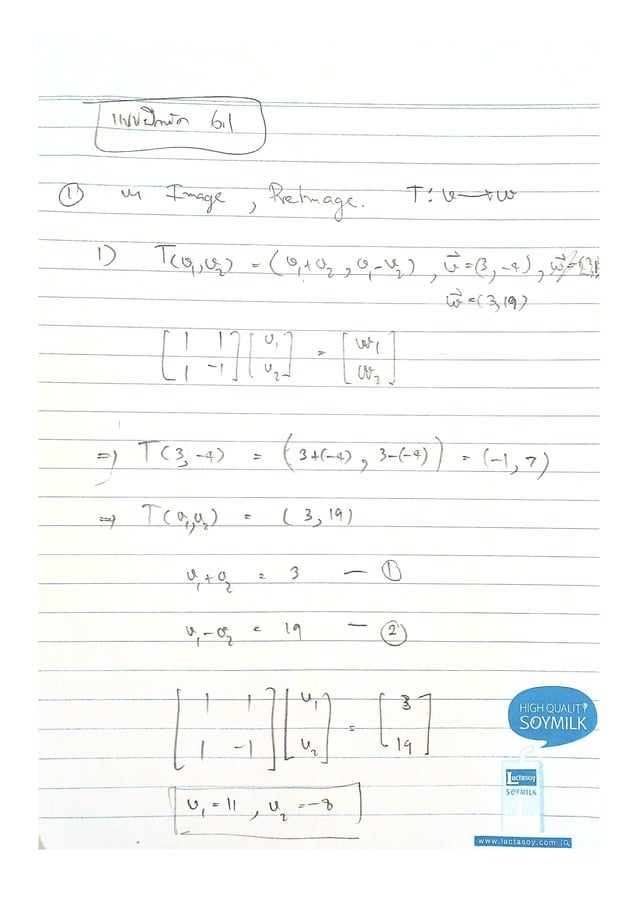 แบบฝึกหัด 6.1
① หา Image, PreImage. T: v → w
1) T(v₁,v₂) = (v₁+v₂, v₁-v₂), v⃗=(3,-4),
w⃗=(3,19)
[1 1; 1 -1] [v₁; v₂] = [w₁; w₂]
⇒ T(3,-4) = (3+(-4), 3-(-4)) = (-1,7)
⇒ T(v₁,v₂) = (3,19)
v₁+v₂ = 3 — ①
v₁-v₂ = 19 — ②
[1 1; 1 -1] [v₁; v₂] = [3; 19]
v₁=11, v₂=-8
HIGH QUALITY
SOYMILK
Lactasoy
SOYMILK
www.lactasoy.com